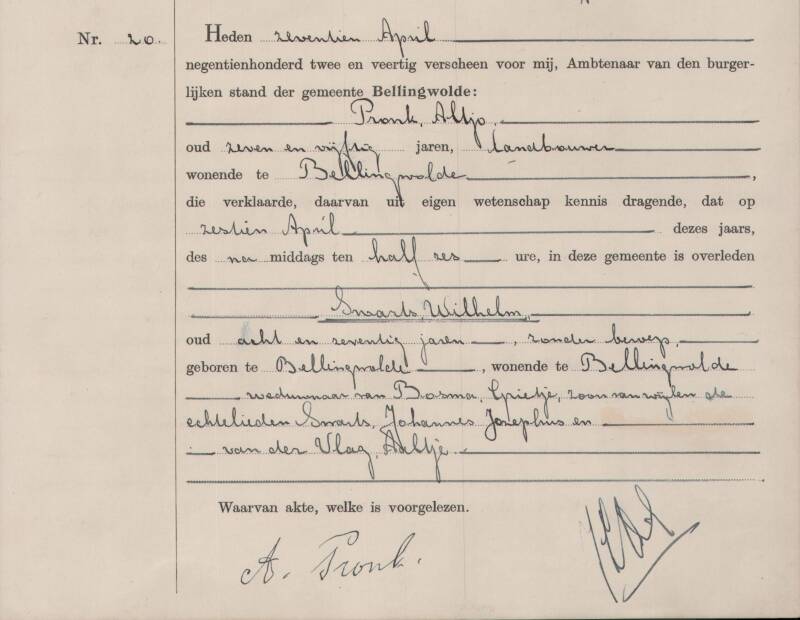 Nr. 20.
Heden zeventien April
negentienhonderd twee en veertig verscheen voor mij, Ambtenaar van den burger-
lijken stand der gemeente Bellingwolde:
Pronk, Altjo,
oud zeven en vijftig jaren, landbouwer
wonende te Bellingwolde,
die verklaarde, daarvan uit eigen wetenschap kennis dragende, dat op
zestien April dezes jaars,
des na middags ten half zes ure, in deze gemeente is overleden
Swarts, Wilhelm,
oud acht en zeventig jaren, zonder beroep,
geboren te Bellingwolde, wonende te Bellingwolde
weduwnaar van Bosma, Grietje, zoon van wijlen de
echtelieden Swarts, Johannes Josephus en
van der Vlag, Aaltje.
Waarvan akte, welke is voorgelezen.
A. Pronk.